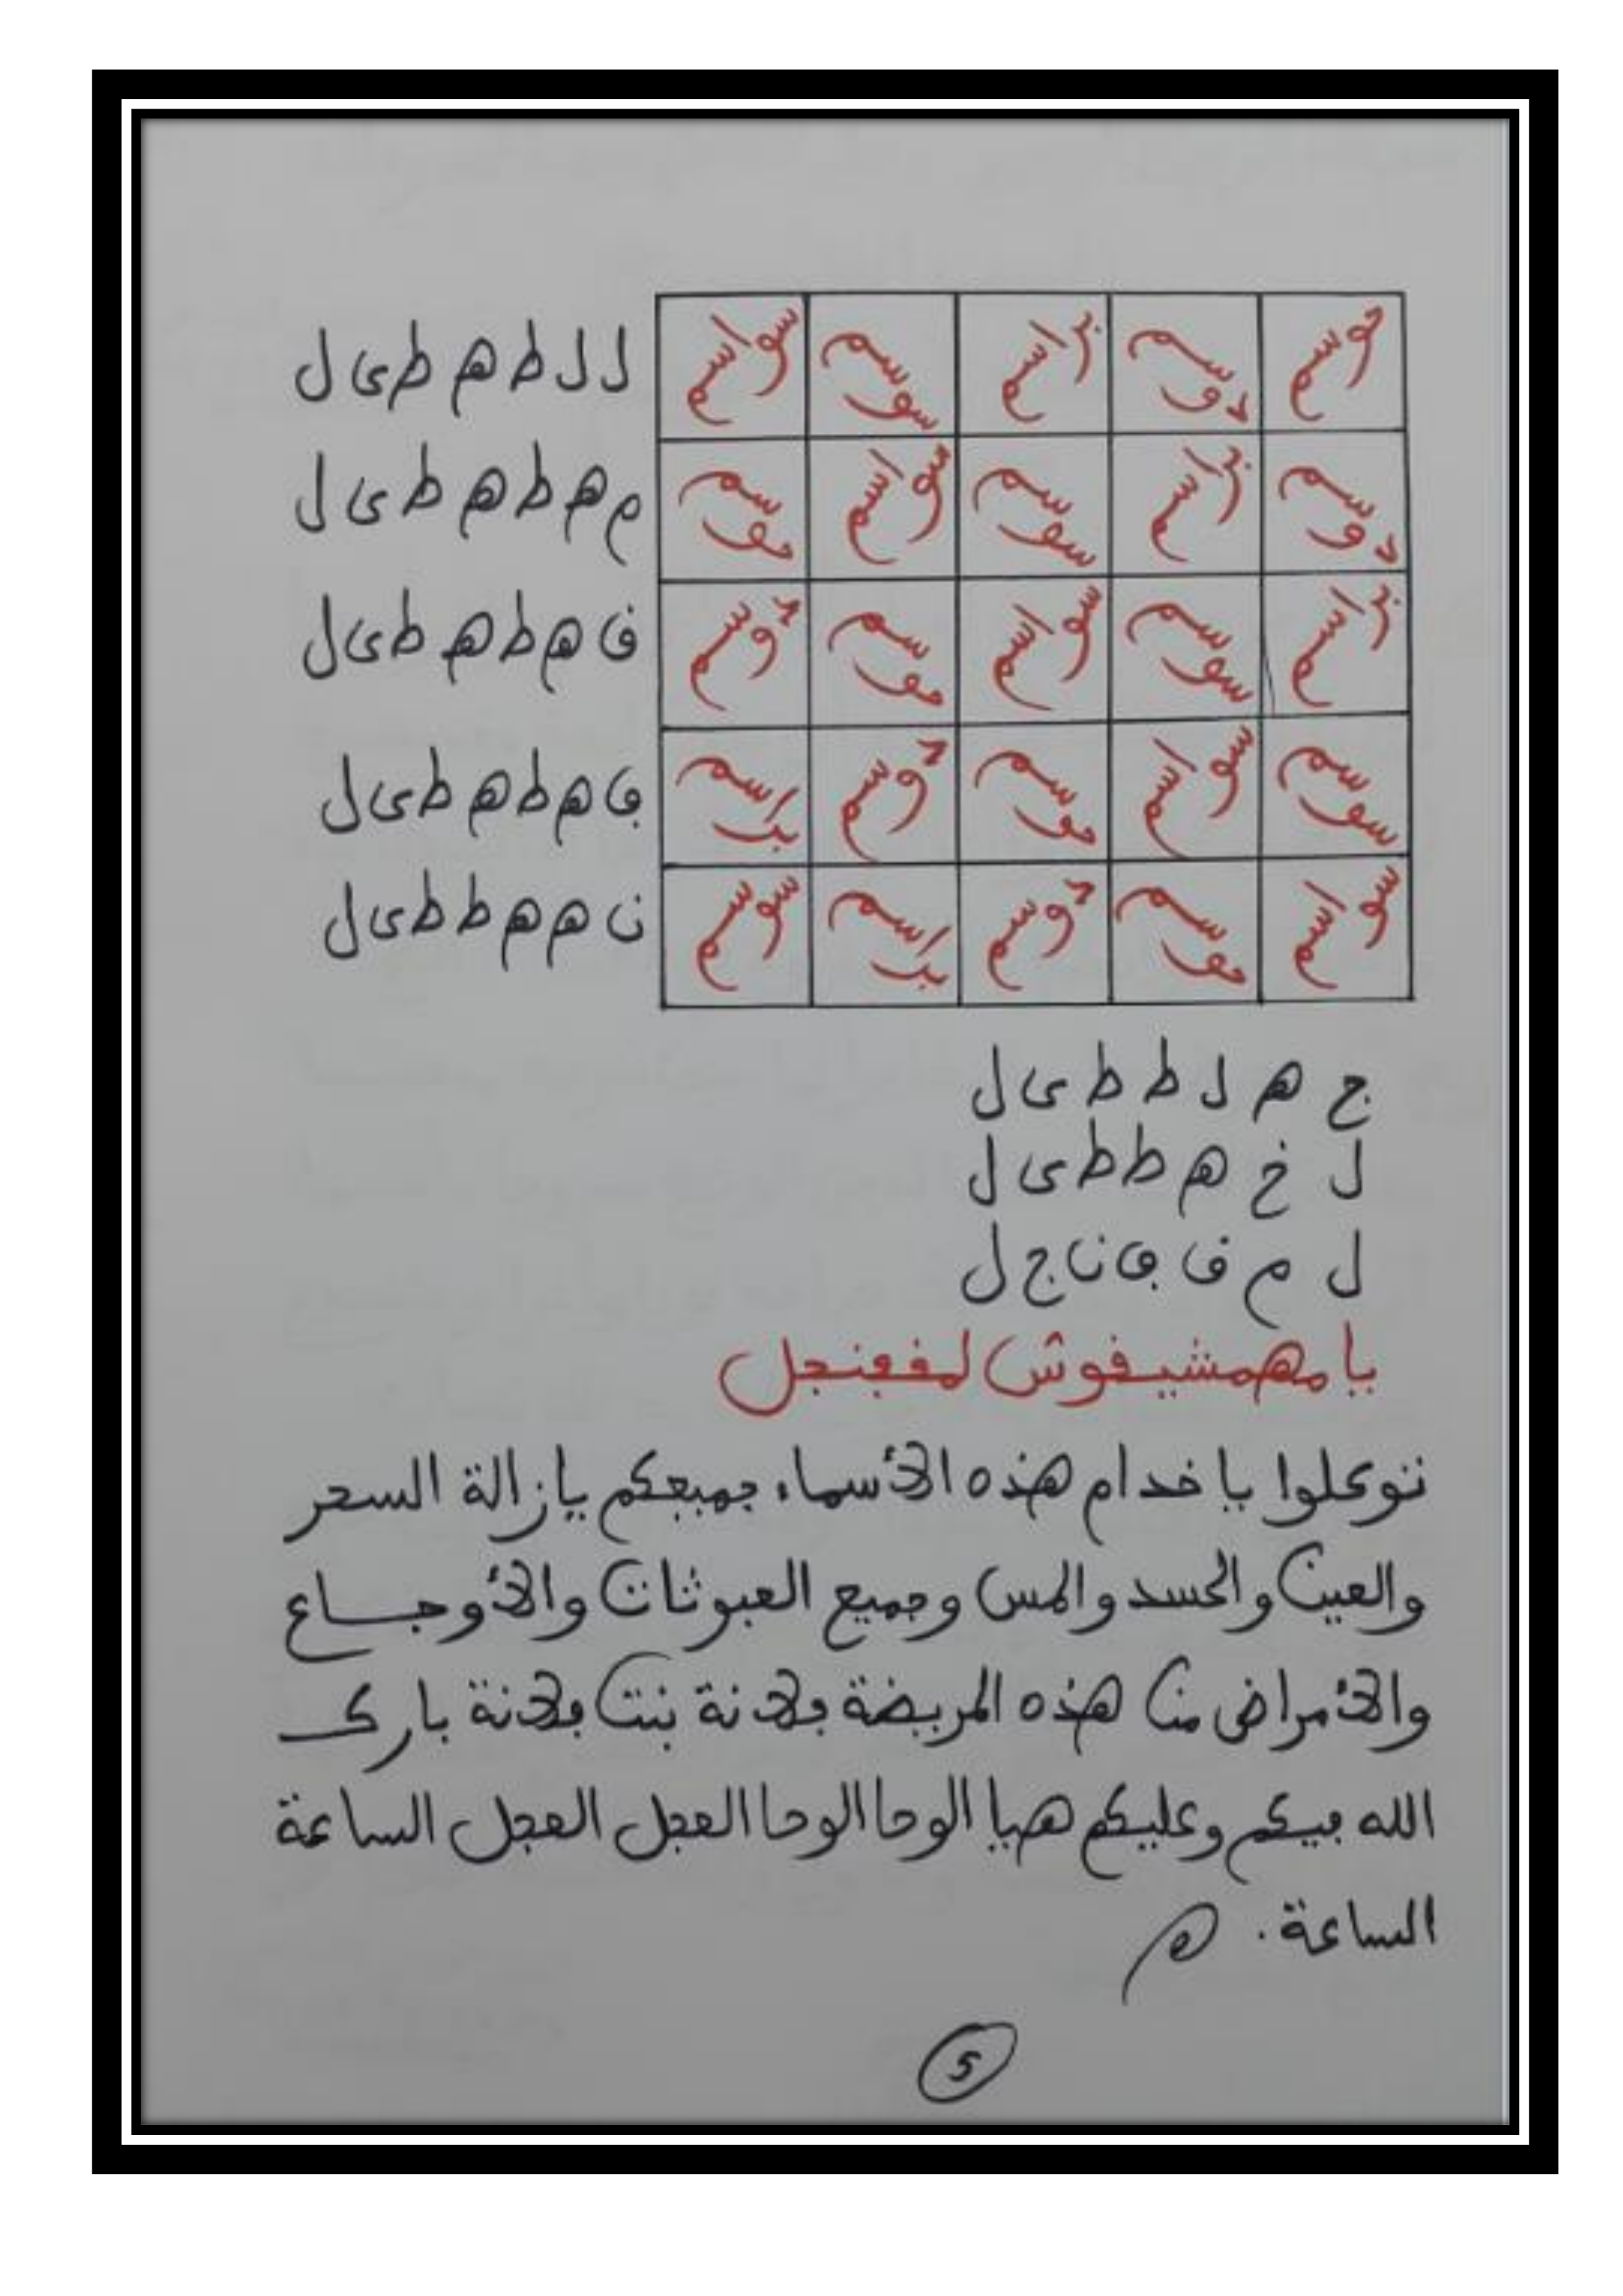 حوسم دوسم براسم سوسم سواسم ل ل ط ه ط ى ل
دوسم براسم سوسم سواسم حوسم م ه ط ه ط ى ل
براسم سوسم سواسم حوسم دوسم ف ه ط ه ط ى ل
سوسم سواسم حوسم دوسم براسم ڢ ه ط ه ط ى ل
سواسم حوسم دوسم براسم سوسم ن ه ه ط ط ى ل
ج ه ل ط ط ى ل
ل خ ه ط ط ى ل
ل م ف ڢ ن ج ل
يا مهمشيفوش لمفڢنجل
توكلوا يا خدام هذه الأسماء جميعكم بإزالة السحر
والعين والحسد والمس وجميع العبوثات والأوجاع
والأمراض من هذه المريضة ڢلانة بنت ڢلانة بارك
الله ڢيكم وعليكم هيا الوحا الوحا العجل العجل الساعة
الساعة. ه
5